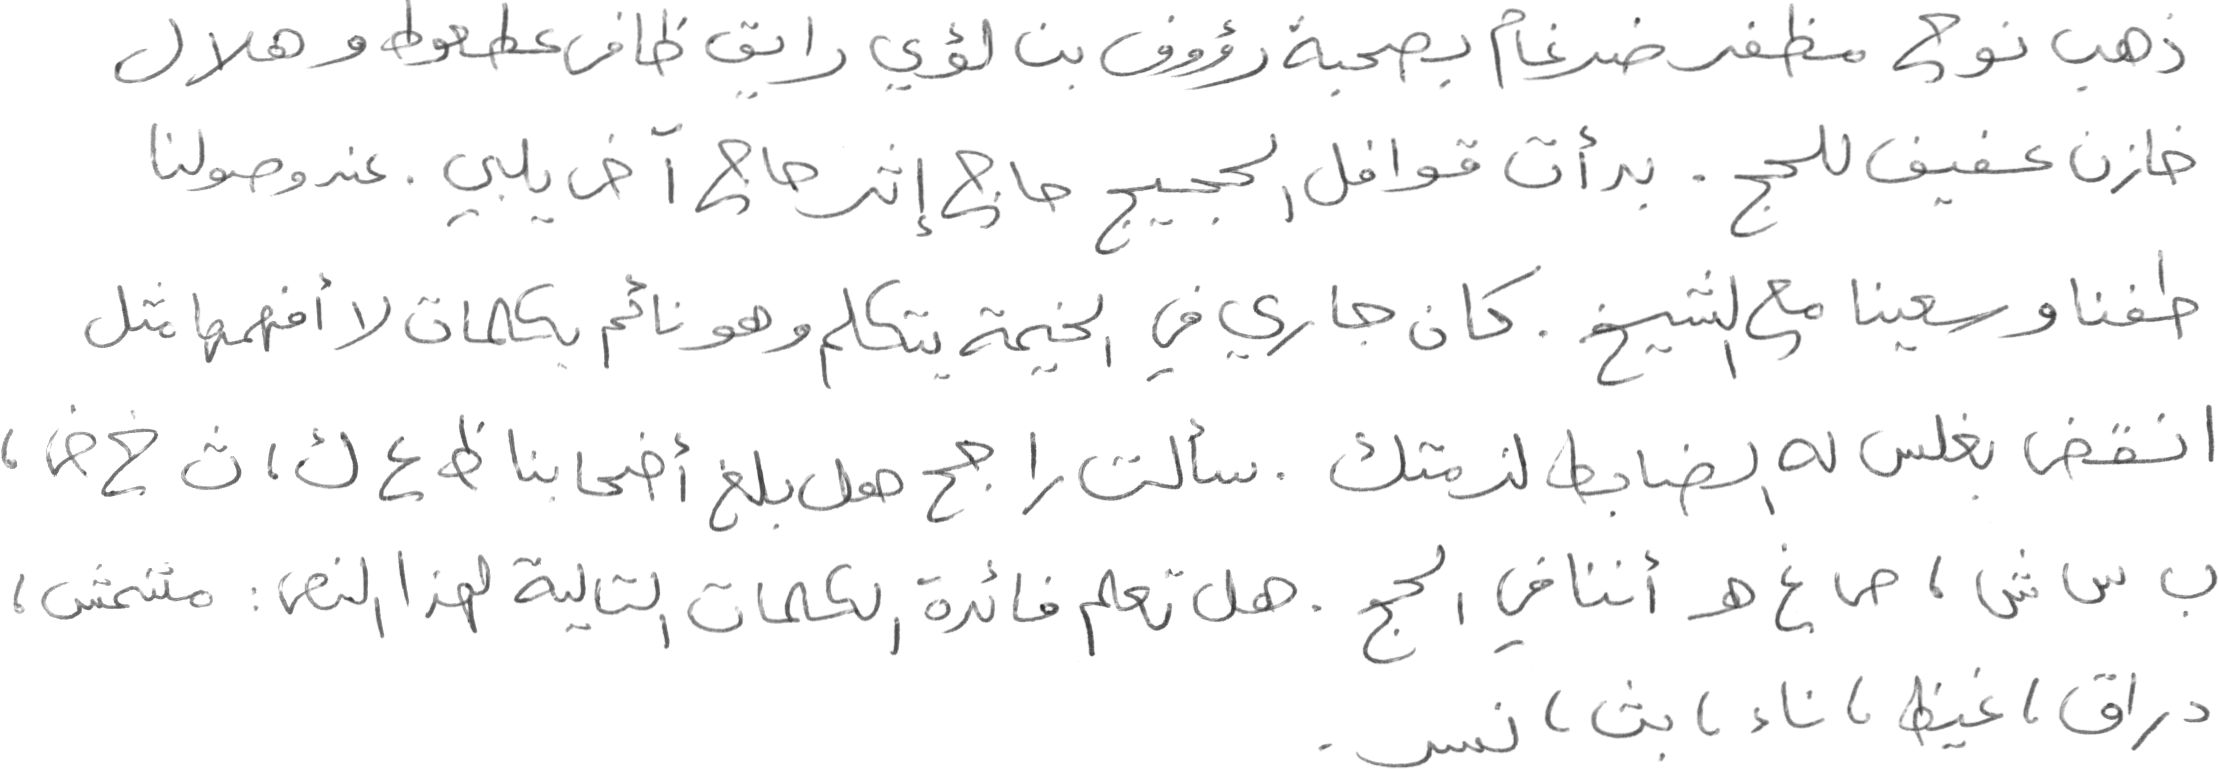 ذهب نوح مظفر ضرغام بصحبة رؤوف بن لؤي رايق ظافر عطعوط و هلال
خازن عفيف للحج . بدأت قوافل الحجيج حاج إثر حاج آخر يلبي . عند وصولنا
طفنا و سعينا مع الشيخ . كان جاري في الخيمة يتكلم وهو نائم بكلمات لا أفهمها مثل
انقض بغلس له الضابط لزمتك . سألت راجح هل بلغ أضحابنا ظ ع ك ، ث خ ض ،
ب س ش ، ص غ هـ أننا في الحج . هل تعلم فائدة الكلمات التالية لهذا النص : مشمش ،
دراق ، غيظ ، ناء ، بث ، نسر .